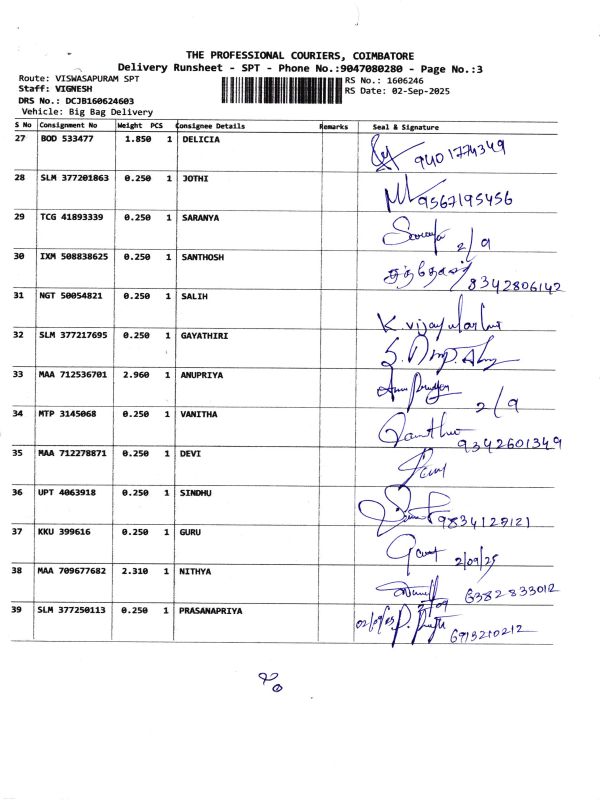 THE PROFESSIONAL COURIERS, COIMBATORE
Delivery Runsheet - SPT - Phone No.:9047080280 - Page No.:3
Route: VISWASAPURAM SPT
RS No.: 1606246
Staff: VIGNESH
RS Date: 02-Sep-2025
DRS No.: DCJB160624603
Vehicle: Big Bag Delivery
S No Consignment No Weight PCS Consignee Details Remarks Seal & Signature
27 BOD 533477 1.850 1 DELICIA 9401774349
28 SLM 377201863 0.250 1 JOTHI 9567195456
29 TCG 41893339 0.250 1 SARANYA 2/9
30 IXM 508838625 0.250 1 SANTHOSH சந்தோஷ் 8342806142
31 NGT 50054821 0.250 1 SALIH
32 SLM 377217695 0.250 1 GAYATHIRI
33 MAA 712536701 2.960 1 ANUPRIYA 2/9
34 MTP 3145068 0.250 1 VANITHA 9342601349
35 MAA 712278871 0.250 1 DEVI
36 UPT 4063918 0.250 1 SINDHU
37 KKU 399616 0.250 1 GURU 2/09/25
38 MAA 709677682 2.310 1 NITHYA 6382833012
39 SLM 377250113 0.250 1 PRASANAPRIYA 6913210212